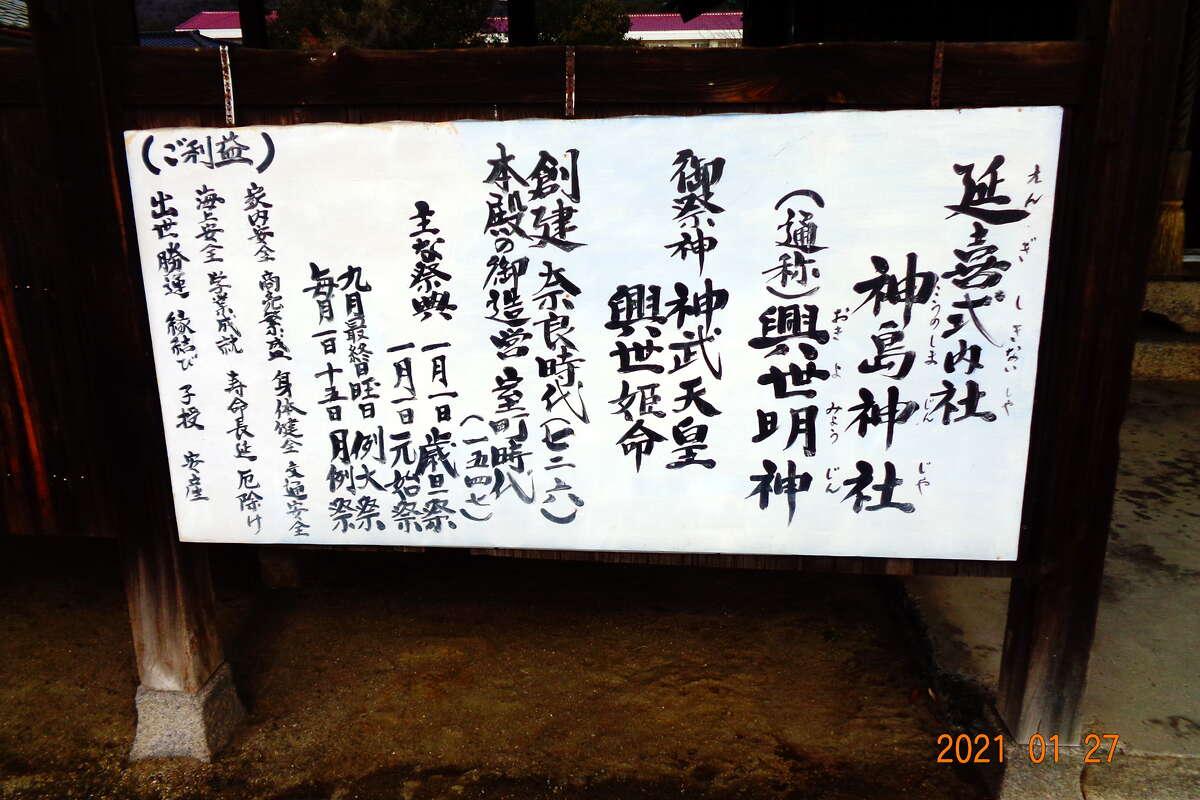 えんぎ しきない しゃ
延喜式内社
こうのしま じん じゃ
神島神社
おき よ みょう じん
（通称）興世明神
御祭神 神武天皇
興世姫命
創建 奈良時代（七二六）
本殿の御造営 室町時代
（一五四七）
主な祭典 一月一日 歳旦祭
一月一日 元始祭
九月最終日旺日 例大祭
毎月一日十五日 月例祭
（ご利益）
家内安全 商売繁盛 身体健全 交通安全
海上安全 学業成就 寿命長延 厄除け
出世勝運 縁結び 子授 安産
2021 01 27